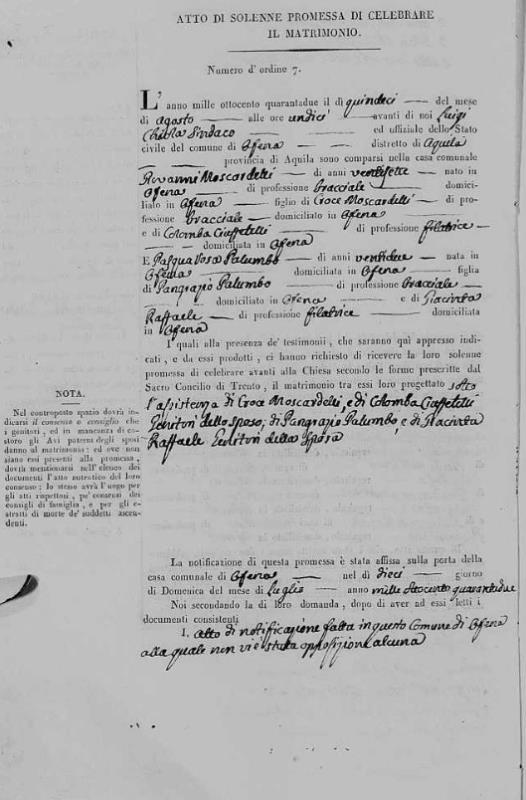 ATTO DI SOLENNE PROMESSA DI CELEBRARE
IL MATRIMONIO.
Numero d' ordine 7.
L' anno mille ottocento quarantadue il dì quindeci del mese
di Agosto alle ore undici avanti di noi Luigi
Sindaco ed uffiziale dello Stato
civile del comune di Ofena distretto di Aquila
provincia di Aquila sono comparsi nella casa comunale
Giovanni Moscardelli di anni ventisette nato in
Ofena di professione bracciale domici-
liato in Ofena figlio di Croce Moscardelli di pro-
fessione bracciale domiciliato in Ofena
e di Colomba Ciaffetelli di professione filatrice
domiciliata in Ofena
E Pasqua Rosa Palumbo di anni ventidue nata in
Ofena domiciliata in Ofena figlia
di Pangrazio Palumbo di professione bracciale
domiciliato in Ofena e di Giacinta
Raffaele di professione filatrice domiciliata
in Ofena
I quali alla presenza de' testimonii, che saranno qui appresso indi-
cati, e da essi prodotti, ci hanno richiesto di ricevere la loro solenne
promessa di celebrare avanti alla Chiesa secondo le forme prescritte dal
Sacro Concilio di Trento, il matrimonio tra essi loro progettato sotto
l'assistenza di Croce Moscardelli, e di Colomba Ciaffetelli
Genitori dello sposo; di Pangrazio Palumbo, e di Giacinta
Raffaele Genitori della sposa
NOTA.
Nel controposto spazio dovrà in-
dicarsi il consenso o consiglio che
i genitori, ed in mancanza di co-
storo gli Avi paterni degli sposi
danno al matrimonio: ed ove non
siano essi presenti alla promessa,
dovrà mentovarsi nell' elenco dei
documenti l'atto autentico del loro
consenso: lo stesso avrà luogo per
gli atti rispettosi, pe' consensi dei
consigli di famiglia, e per gli e-
stratti di morte de' suddetti ascen-
denti.
La notificazione di questa promessa è stata affissa sulla porta della
casa comunale di Ofena nel dì dieci giorno
di Domenica del mese di Luglio anno mille ottocento quarantadue
Noi secondando la di loro domanda, dopo di aver ad essi letti i
documenti consistenti
1. Atto di notificazione fatta in questo Comune di Ofena
alla quale non vi è stata opposizione alcuna